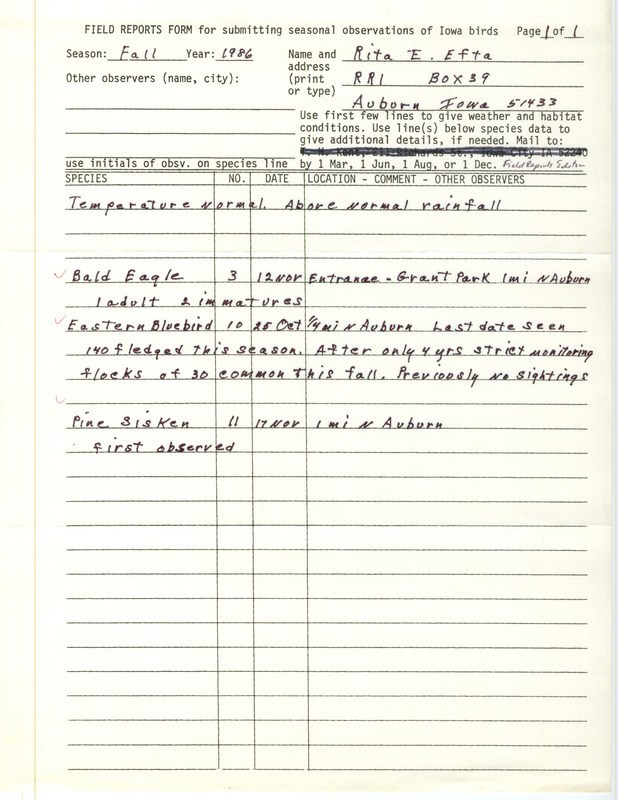 FIELD REPORTS FORM for submitting seasonal observations of Iowa birds Page 1 of 1
Season: Fall Year: 1986 Name and Rita E. Efta
address
Other observers (name, city): (print RR1 Box 39
or type)
Auburn Iowa 51433
Use first few lines to give weather and habitat
conditions. Use line(s) below species data to
give additional details, if needed. Mail to:
T. H. Kent, 211 Richards St., Iowa City IA 52240
use initials of obsv. on species line by 1 Mar, 1 Jun, 1 Aug, or 1 Dec. Field Reports Editor
SPECIES NO. DATE LOCATION - COMMENT - OTHER OBSERVERS
Temperature normal. Above normal rainfall
Bald Eagle 3 12 Nov Entranae - Grant Park 1 mi N Auburn
1 adult 2 immatures
Eastern Bluebird 10 25 Oct 1/4 mi N Auburn Last date seen
140 fledged this season. After only 4 yrs strict monitoring
flocks of 30 common this fall. Previously no sightings
Pine Sisken 11 17 Nov 1 mi N Auburn
first observed